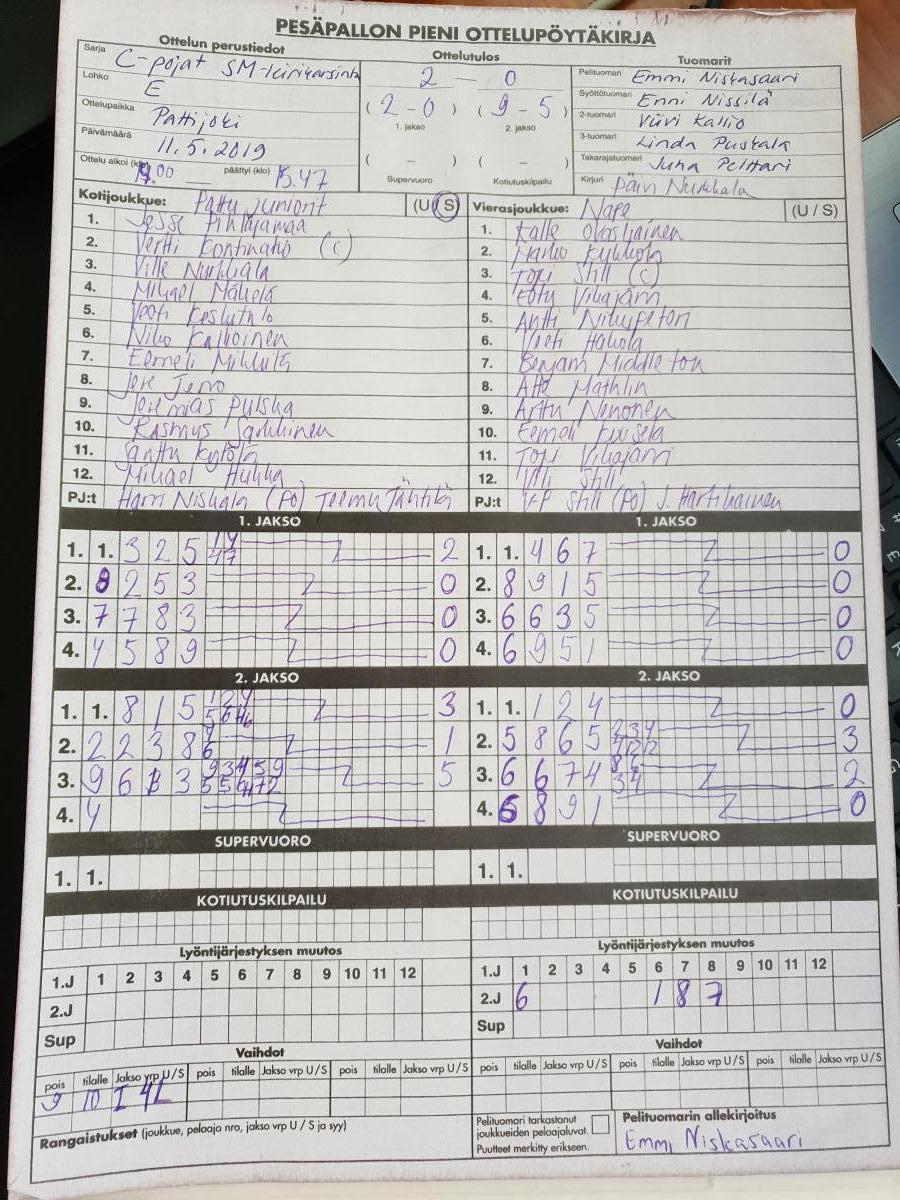 PESÄPALLON PIENI OTTELUPÖYTÄKIRJA
Ottelun perustiedot Ottelutulos Tuomarit
Sarja C-pojat SM-leirikarsinta
Lohko E
Ottelupaikka Pattijoki
Päivämäärä 11.5.2019
Ottelu alkoi (klo) päättyi (klo) 15.47
2 - 0
(2-0) (9-5)
1. jakso 2. jakso
( - ) ( - )
Supervuoro Kotiutuskilpailu
Pelituomari Emmi Niskasaari
Syöttötuomari Enni Nissilä
2-tuomari Viivi Kallio
3-tuomari Linda Puskala
Takarajatuomari Juha Pelttari
Kirjuri Päivi Nurkkala
Kotijoukkue: Pattu Juniorit (U/S)
1. Jesse Pihlajamaa
2. Vertti Kontinaho (c)
3. Ville Nurkkala
4. Mikael Mäkelä
5. Veeti Keslutalo
6. Niko Kallioinen
7. Eemeli
8. Jere Tervo
9. Jeremias Pylskä
10. Rasmus
11. Santtu Kytölä
12. Mikael Hukka
PJ:t Harri Niskala (PO) Teemu
Vierasjoukkue: Nape (U / S)
1. Kalle
2. Marko
3. Topi Still (c)
4. Eetu Viljajärvi
5. Antti
6. Veeti Hakola
7. Benjam Middleton
8. Atte Mathlin
9. Arttu Nenonen
10. Eemeli Kuusela
11. Topi Viljajärvi
12. Vili Still
PJ:t V-P Still (PO) J. Hartikainen
1. JAKSO 1. JAKSO
1. 1. 3 2 5 14 47 2
2. 8 2 5 3 0
3. 7 7 8 3 0
4. 4 5 8 9 0
1. 1. 4 6 7 0
2. 8 9 1 5 0
3. 6 6 3 5 0
4. 6 9 5 1 0
2. JAKSO 2. JAKSO
1. 1. 8 1 5 3
2. 2 2 3 8 4 6 1
3. 9 6 3 5
4. 4
1. 1. 1 2 4 0
2. 5 8 6 5 2 3 4 3
3. 6 6 7 4 8 2 3 4 2
4. 6 8 9 1 0
SUPERVUORO SUPERVUORO
1. 1. 1. 1.
KOTIUTUSKILPAILU KOTIUTUSKILPAILU
Lyöntijärjestyksen muutos Lyöntijärjestyksen muutos
1.J 1 2 3 4 5 6 7 8 9 10 11 12 1.J 1 2 3 4 5 6 7 8 9 10 11 12
2.J 2.J 6 1 8 7
Sup Sup
Vaihdot Vaihdot
pois tilalle Jakso vrp U/S pois tilalle Jakso vrp U/S pois tilalle Jakso vrp U/S pois tilalle Jakso vrp U/S pois tilalle Jakso vrp U/S pois tilalle Jakso vrp U/S
9 10 I 4L
Rangaistukset (joukkue, pelaaja nro, jakso vrp U / S ja syy)
Pelituomari tarkastanut
joukkueiden pelaajaluvat.
Puutteet merkitty erikseen.
Pelituomarin allekirjoitus
Emmi Niskasaari